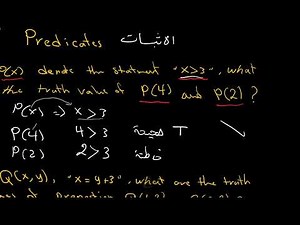 Predicates الاثباتات
P(x) denote the statement "x>3", what
the truth value of P(4) and P(2)?
P(x) => x>3
P(4) 4>3 صحيحة T
P(2) 2>3 خاطئة
Q(x,y), "x=y+3", what are the truth
of Proposition